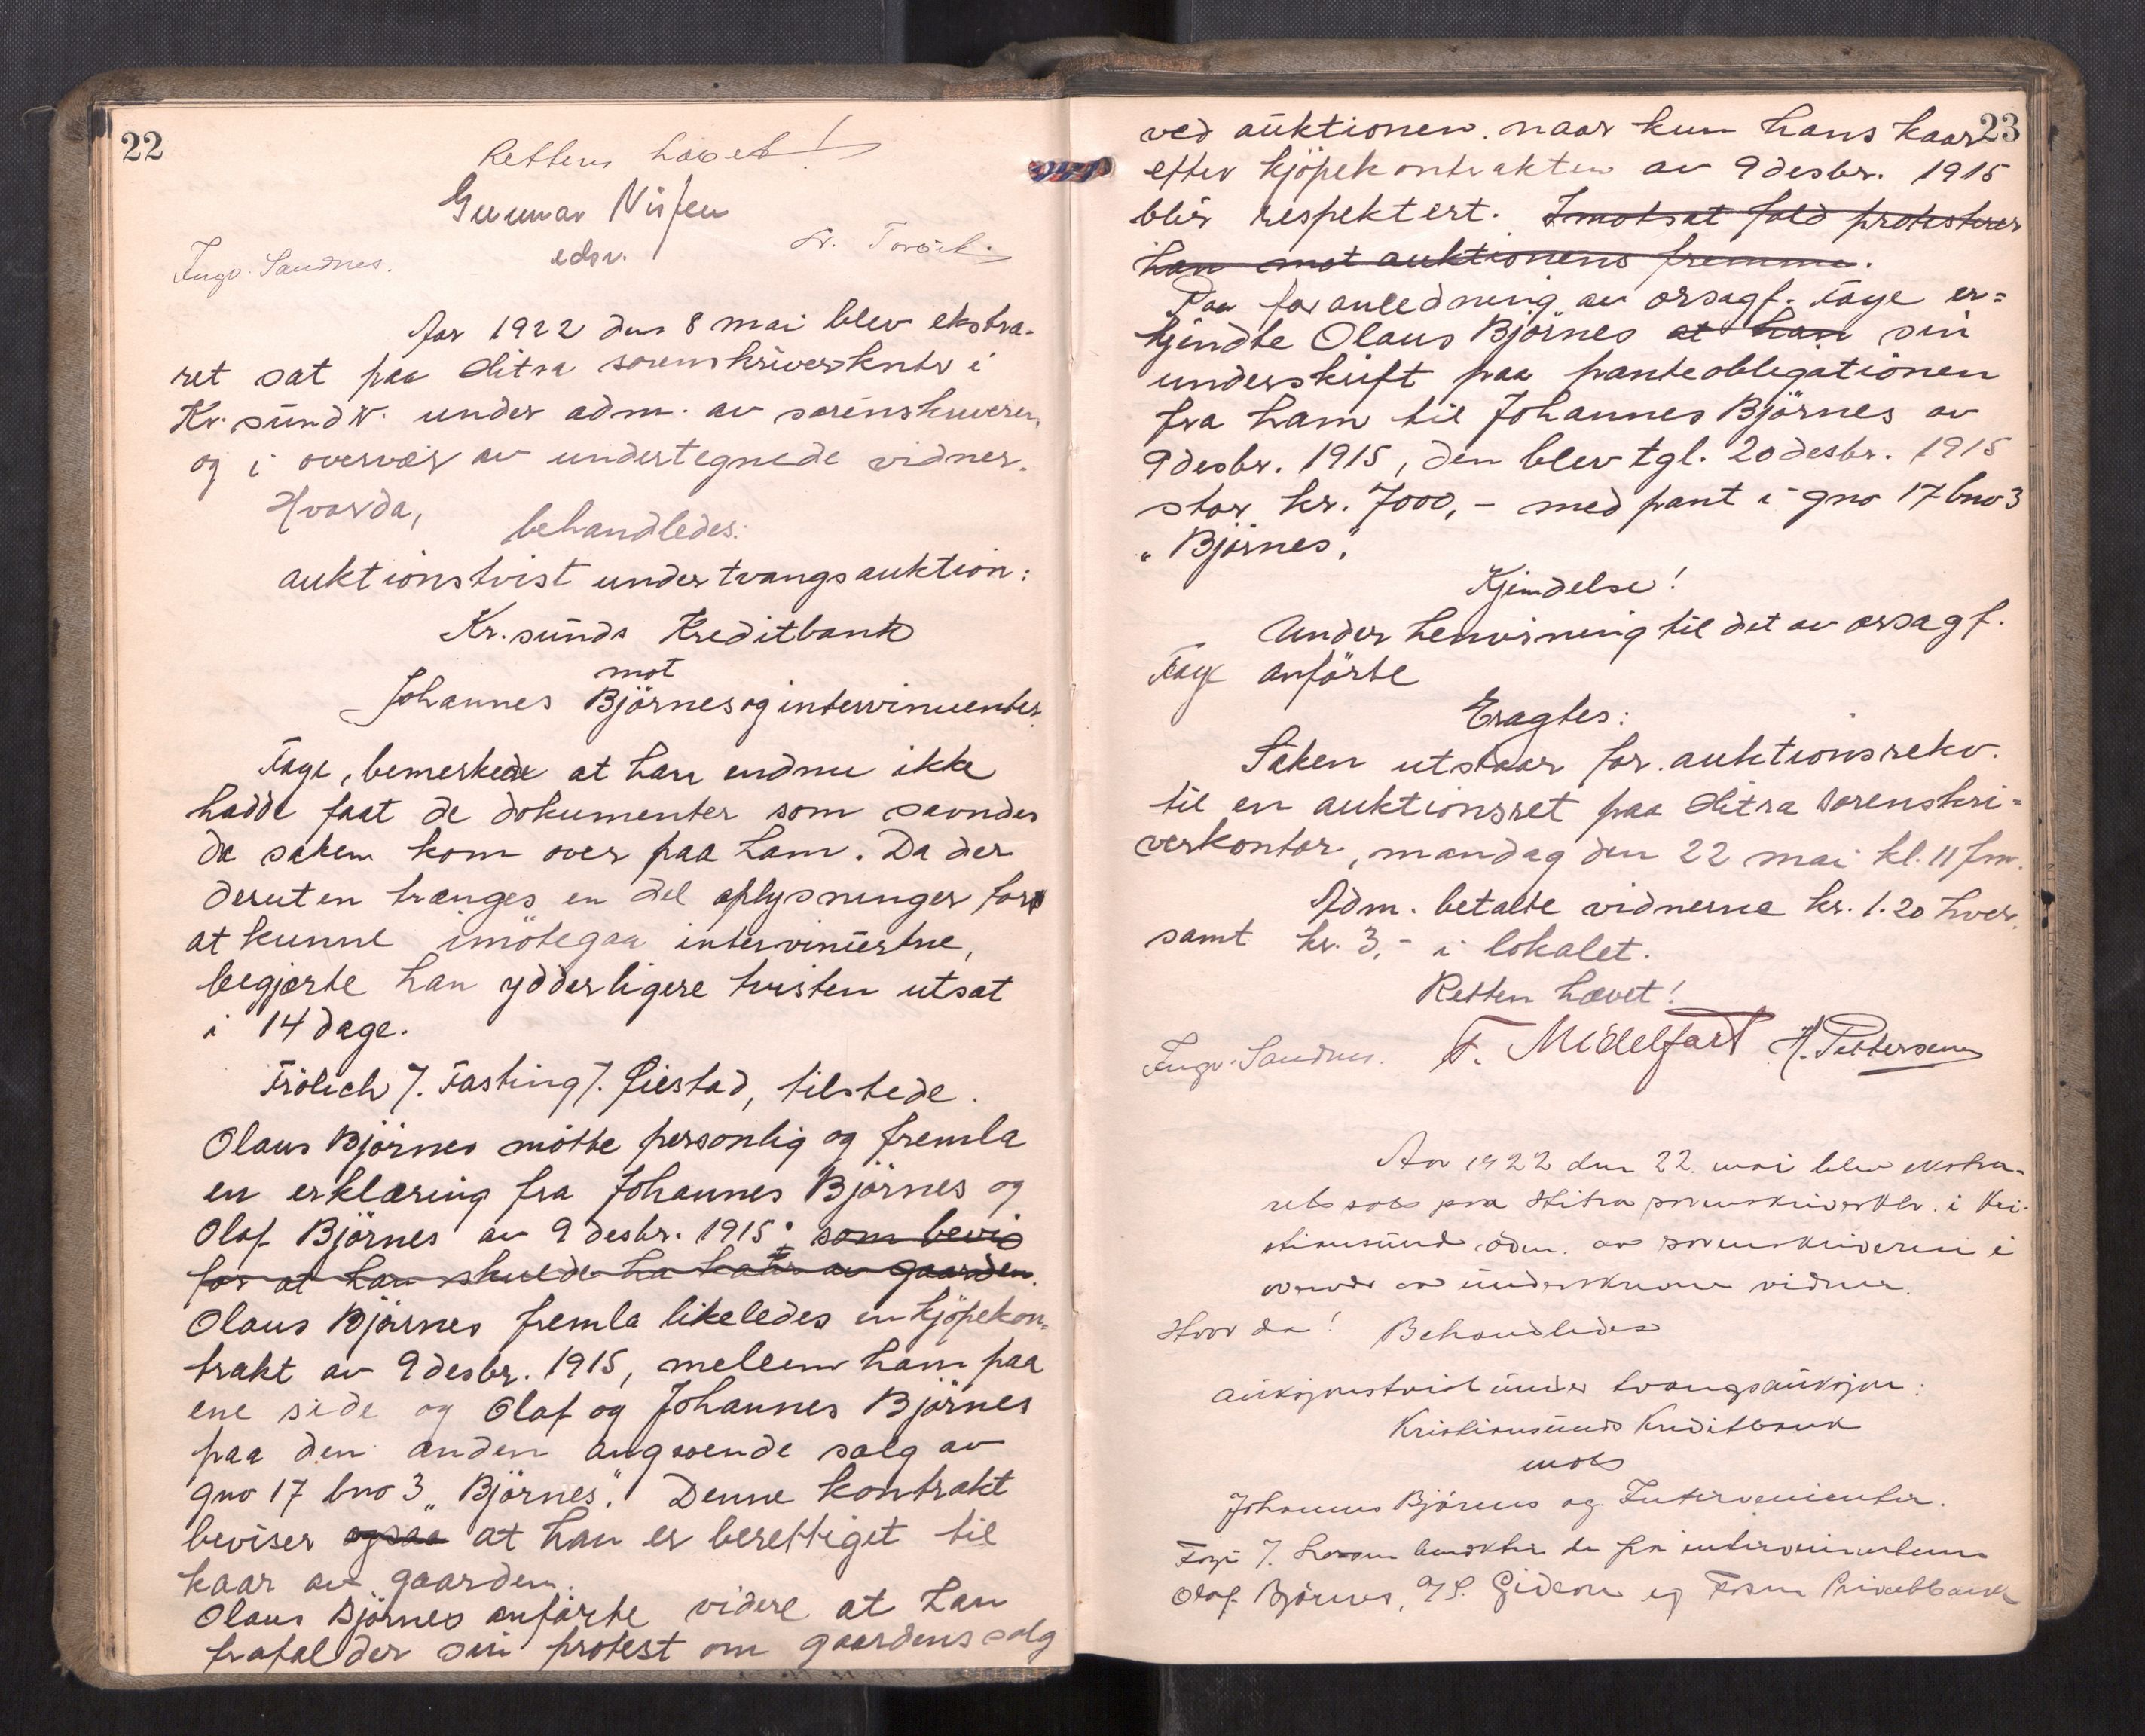 22
Retten hævet!
Gunnar Nissen
edsv.
Ingv. Sandnes.
Aar 1922 den 8 mai blev ekstra-
ret sat paa Hitra sorenskriverkntr i
Kr.sund N. under adm. av sorenskriveren,
og i overvær av undertegnede vidner.
Hvorda,
behandledes:
auktionstvist under tvangsauktion:
Kr.sunds Kreditbank
mot
Johannes Björnes og intervinienter.
Faye, bemerkede at han endnu ikke
hadde faat de dokumenter som savndes
da saken kom over paa ham. Da der
desuten trænges en del oplysninger for
at kunne imötegaa intervinientne,
begjærte han ydderligere tvisten utsat
i 14 dage.
Frölich f. Fasting f. Gjestad, tilstede.
Olaus Björnes mötte personlig og fremla
en erklæring fra Johannes Björnes og
Olaf Björnes av 9 desbr. 1915. som bevis
for at han skulde ha kaar av gaarden.
Olaus Björnes fremla likeledes en kjöpekon-
trakt av 9 desbr. 1915, mellem ham paa
ene side og Olaf og Johannes Björnes
paa den anden angaaende salg av
gno 17 bno 3 „Björnes". Denne kontrakt
beviser ogsaa at han er berettiget til
kaar av gaarden.
Olaus Björnes anförte videre at han
frafalder sin protest om gaardens salg
23
ved auktionen. naar kun hans kaar
efter kjöpekontrakten av 9 desbr. 1915
blir respektert. I motsat fald protesterer
han mot auktionens fremme.
Paa foranledning av orsagf. Faye er=
kjendte Olaus Björnes at han sin
underskrift paa panteobligationen
fra ham til Johannes Björnes av
9 desbr. 1915, den blev tgl. 20 desbr. 1915
stor kr. 7000,- med pant i gno 17 bno 3
„Björnes".
Kjendelse!
Under henvisning til det av orsagf.
Faye anförte
Eragtes:
Saken utstaar for auktionsrekv.
til en auktionsret paa Hitra sorenskri=
verkontor, mandag den 22 mai kl. 11 fm.
Adm. betalte vidnerne kr. 1.20 hver
samt kr. 3,- i lokalet.
Retten hævet!
Ingv. Sandnes. F. Midelfart H. Pettersen
Aar 1922 den 22. mai blev ekstra-
ret sat paa Hitra sorenskriverktr. i Kri-
stiansund adm. av sorenskriveren i
overvær av underskrevne vidner.
Hvor da! Behandledes
auksjonstvist under tvangsauksjon:
Kristiansunds Kreditbank
mot
Johannes Björnes og Intervenienter.
Faye f. bemerkte de fra intervenientene
Olaf Björnes, Gideon og Fosen Privatbank